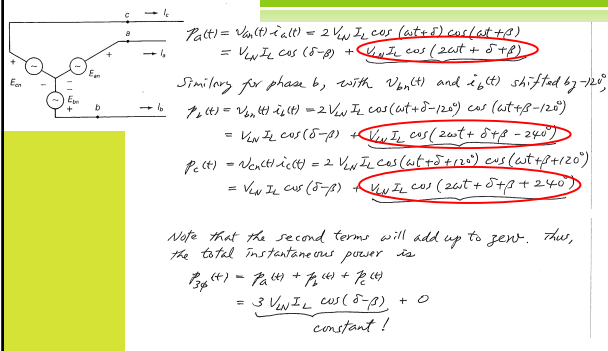 c → I_c
a
→ I_a
E_cn
E_an
E_bn
b → I_b
p_a(t) = v_an(t) i_a(t) = 2 V_LN I_L cos (ωt+δ) cos(ωt+β)
= V_LN I_L cos (δ-β) + V_LN I_L cos (2ωt + δ+β)
Similary for phase b, with v_bn(t) and i_b(t) shifted by -120°,
p_b(t) = v_bn(t) i_b(t) = 2 V_LN I_L cos(ωt+δ-120°) cos (ωt+β-120°)
= V_LN I_L cos(δ-β) + V_LN I_L cos (2ωt + δ+β - 240°)
p_c(t) = v_cn(t) i_c(t) = 2 V_LN I_L cos(ωt+δ+120°) cos(ωt+β+120°)
= V_LN I_L cos (δ-β) + V_LN I_L cos (2ωt + δ+β + 240°)
Note that the second terms will add up to zero. Thus,
the total instantaneous power is
p_3φ(t) = p_a(t) + p_b(t) + p_c(t)
= 3 V_LN I_L cos(δ-β) + 0
constant!